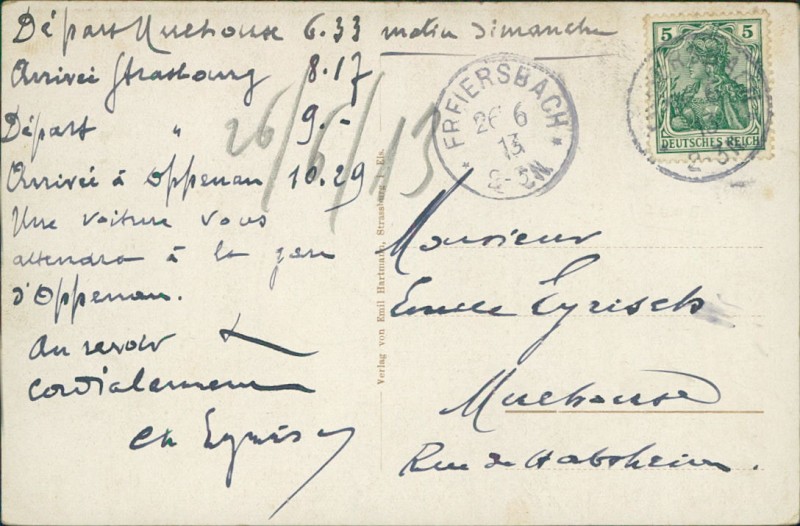 Départ Mulhouse 6.33 matin Dimanche
Arrivée Strasbourg 8.17
Départ " 9.-
Arrivée à Oppenau 10.29
Une voiture vous
attendra à la gare
d'Oppenau.
Au revoir
Cordialement
Ch Eyrisch
26/6/13
* FREIERSBACH *
26 6
13
2-3N
5 5
DEUTSCHES REICH
Verlag von Emil Hartmann, Strassburg i. Els.
Monsieur
Emile Eyrisch
Mulhouse
Rue de Habsheim.